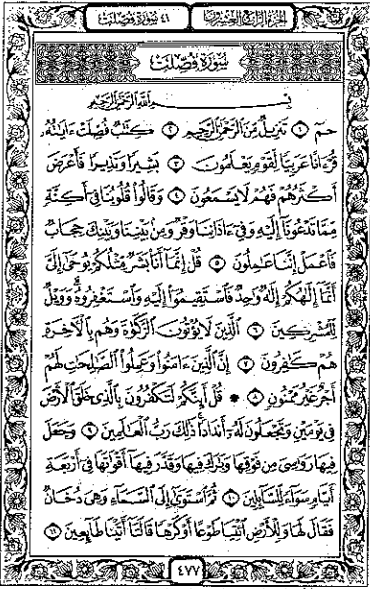 الجزء الرابع والعشرون
٤١ سورة فصلت
سورة فصلت
بسم الله الرحمن الرحيم
حمٓ ١ تَنزِيلٌ مِّنَ ٱلرَّحْمَٰنِ ٱلرَّحِيمِ ٢ كِتَٰبٌ فُصِّلَتْ ءَايَٰتُهُۥ
قُرْءَانًا عَرَبِيًّا لِّقَوْمٍ يَعْلَمُونَ ٣ بَشِيرًا وَنَذِيرًا فَأَعْرَضَ
أَكْثَرُهُمْ فَهُمْ لَا يَسْمَعُونَ ٤ وَقَالُوا۟ قُلُوبُنَا فِىٓ أَكِنَّةٍ
مِّمَّا تَدْعُونَآ إِلَيْهِ وَفِىٓ ءَاذَانِنَا وَقْرٌ وَمِنۢ بَيْنِنَا وَبَيْنِكَ حِجَابٌ
فَٱعْمَلْ إِنَّنَا عَٰمِلُونَ ٥ قُلْ إِنَّمَآ أَنَا۠ بَشَرٌ مِّثْلُكُمْ يُوحَىٰٓ إِلَىَّ
أَنَّمَآ إِلَٰهُكُمْ إِلَٰهٌ وَٰحِدٌ فَٱسْتَقِيمُوٓا۟ إِلَيْهِ وَٱسْتَغْفِرُوهُ ۗ وَوَيْلٌ
لِّلْمُشْرِكِينَ ٦ ٱلَّذِينَ لَا يُؤْتُونَ ٱلزَّكَوٰةَ وَهُم بِٱلْءَاخِرَةِ
هُمْ كَٰفِرُونَ ٧ إِنَّ ٱلَّذِينَ ءَامَنُوا۟ وَعَمِلُوا۟ ٱلصَّٰلِحَٰتِ لَهُمْ
أَجْرٌ غَيْرُ مَمْنُونٍ ٨ ۞ قُلْ أَئِنَّكُمْ لَتَكْفُرُونَ بِٱلَّذِى خَلَقَ ٱلْأَرْضَ
فِى يَوْمَيْنِ وَتَجْعَلُونَ لَهُۥٓ أَندَادًا ۚ ذَٰلِكَ رَبُّ ٱلْعَٰلَمِينَ ٩ وَجَعَلَ
فِيهَا رَوَٰسِىَ مِن فَوْقِهَا وَبَٰرَكَ فِيهَا وَقَدَّرَ فِيهَآ أَقْوَٰتَهَا فِىٓ أَرْبَعَةِ
أَيَّامٍ سَوَآءً لِّلسَّآئِلِينَ ١٠ ثُمَّ ٱسْتَوَىٰٓ إِلَى ٱلسَّمَآءِ وَهِىَ دُخَانٌ
فَقَالَ لَهَا وَلِلْأَرْضِ ٱئْتِيَا طَوْعًا أَوْ كَرْهًا قَالَتَآ أَتَيْنَا طَآئِعِينَ ١١
٤٧٧